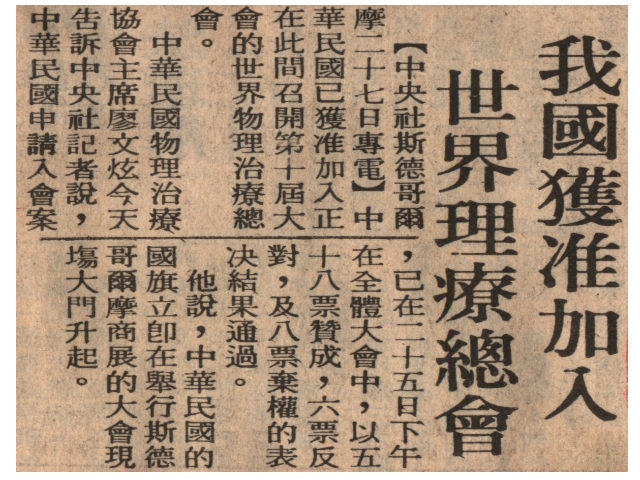 我國獲准加入
世界理療總會
【中央社斯德哥爾
摩二十七日專電】中
華民國已獲准加入正
在此間召開第十屆大
會的世界物理治療總
會。
中華民國物理治療
協會主席廖文炫今天
告訴中央社記者說，
中華民國申請入會案
，已在二十五日下午
在全體大會中，以五
十八票贊成，六票反
對，及八票棄權的表
決結果通過。
他說，中華民國的
國旗立卽在舉行斯德
哥爾摩商展的大會現
場大門升起。